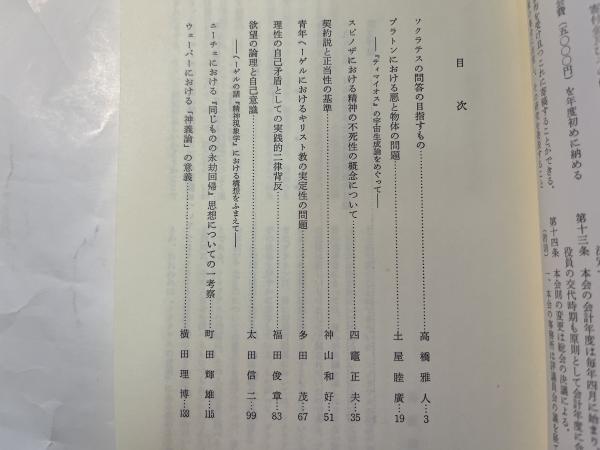 目次
ソクラテスの問答の目指すもの……高橋雅人…3
プラトンにおける悪と物体の問題……土屋睦廣…19
――『ティマイオス』の宇宙生成論をめぐって――
スピノザにおける精神の不死性の概念について……四竈正夫…35
契約説と正当性の基準……神山和好…51
青年ヘーゲルにおけるキリスト教の実定性の問題……多田茂…67
理性の自己矛盾としての実践的二律背反……福田俊章…83
欲望の論理と自己意識……太田信二…99
――ヘーゲルの『精神現象学』における構想をふまえて――
ニーチェにおける『同じものの永劫回帰』思想についての一考察……町田輝雄…115
ウェーバーにおける「神義論」の意義……横田理博…133
(五〇〇〇円)を年度初めに納める
第十三条 本会の会計年度は毎年四月に始まり
役員の交代時期も原則として会計年度に合
第十四条 本会則の変更は総会の決議による。
(附則)
一、本会の事務所は評議員会の議を経て